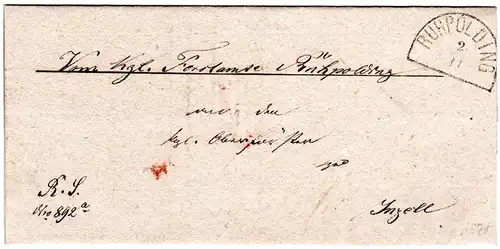 RUHPOLDING
2
11
Vom kgl. Forstamte Ruhpolding
an den
kgl. Oberförster
zu
Inzell
R. S.
Nro 892 a